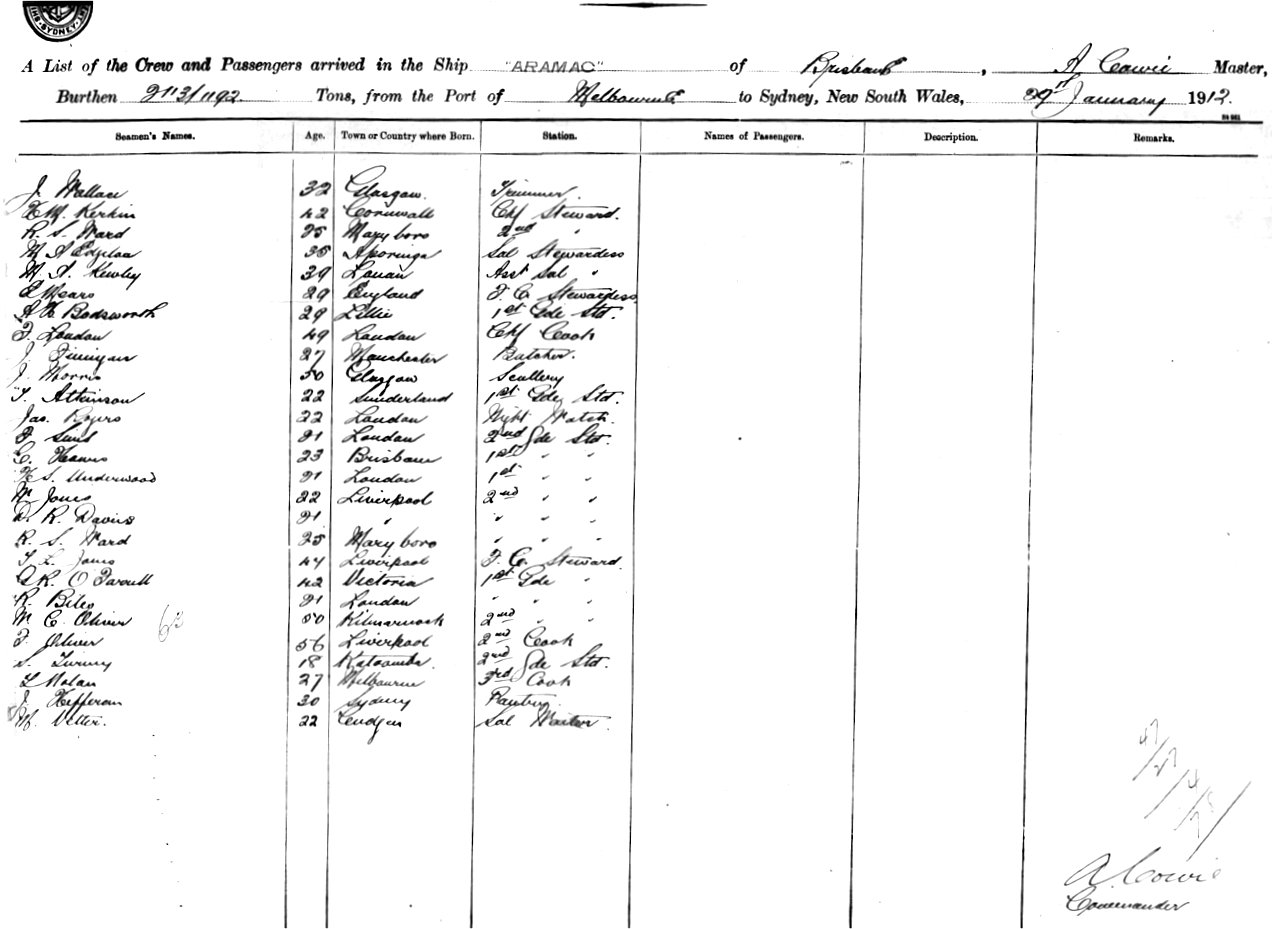 SYDNEY
A List of the Crew and Passengers arrived in the Ship "ARAMAC" of Brisbane, A Cowie Master,
Burthen 2113/1192 Tons, from the Port of Melbourne to Sydney, New South Wales, 29th January 1912.
Seamen's Names. Age. Town or Country where Born. Station. Names of Passengers. Description. Remarks.
J. Wallace 32 Glasgow. Trimmer.
Kerkin 42 Cornwall Chf Steward.
R. S. Ward 25 Maryboro 2nd "
M A 35 Sal Stewardess
M. A. Kewley 39 Asst Sal "
E Mears 29 England F. C. Stewardess
A Bodsworth 29 1st Gde Std.
F. London 49 London Chf Cook
J. Finigan 27 Manchester Butcher.
J. Morris 50 Glasgow Scullery
T. Atkinson 22 Sunderland 1st Gde Std.
Jas. Rogers 22 London Night Watch.
F 21 London 2nd Gde Std.
C. 23 Brisbane 1st " "
H S. Underwood 21 London 1st " "
W Jones 22 Liverpool 2nd " "
D. R. Davies 21 " " " "
R. S. Ward 25 Maryboro " " "
T L. Jones 44 Liverpool F. C. Steward
R. O'Farrell 42 Victoria 1st Gde "
R. Biles 21 London " " "
M. C. Oliver 63 50 Kilmarnock 2nd " "
F. Oliver 56 Liverpool 2nd Cook
S. 18 Katoomba. 2nd Gde Std.
L Nolan 27 Melbourne 3rd Cook
J. Hefferan 30 Sydney Pantry.
M. 22 Cudgen Sal Waiter.
47/27
A. Cowie
Commander